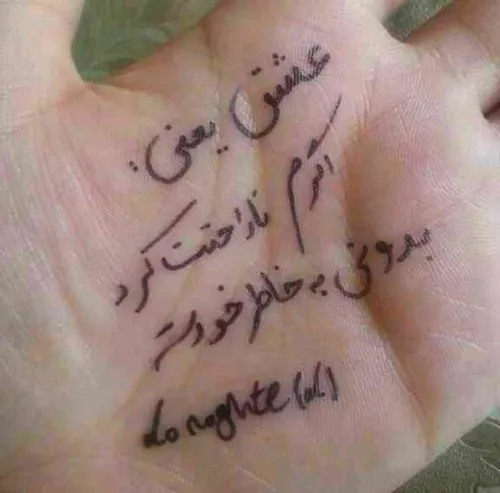 عشق یعنی:
اگرم ناراحتت کرد
بدونی به خاطر خودته
do noghte (al)